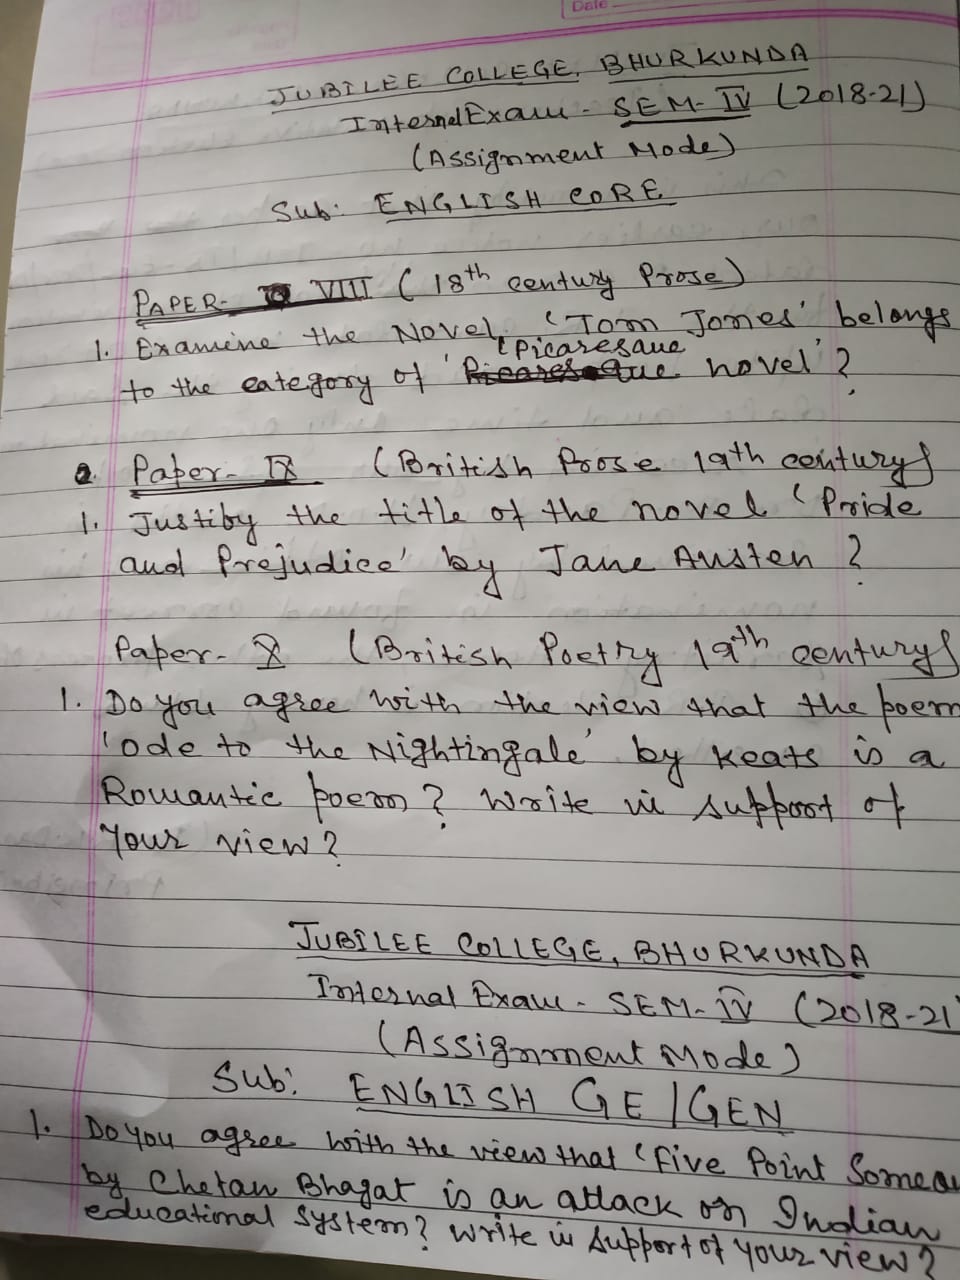 Date
JUBILEE COLLEGE, BHURKUNDA
Internal Exam - SEM-IV (2018-21)
(Assignment Mode)
Sub: ENGLISH CORE
PAPER- VIII (18th century Prose)
1. Examine the Novel, 'Tom Jones' belongs
to the category of 'Picaresque novel'?
2. Paper- IX (British Prose 19th century)
1. Justiby the title of the novel 'Pride
and Prejudice' by Jane Austen?
Paper- X (British Poetry 19th century)
1. Do you agree with the view that the poem
'ode to the Nightingale' by Keats is a
Romantic poem? Write in support of
Your view?
JUBILEE COLLEGE, BHURKUNDA
Internal Exam - SEM-IV (2018-21
(Assignment Mode)
Sub: ENGLISH GE/GEN
1. Do you agree with the view that 'Five Point Someo
by Chetan Bhagat is an attack on Indian
educational system? Write in support of your view?